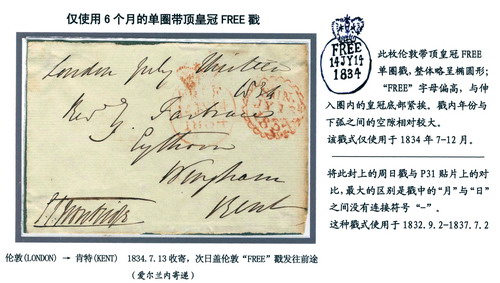 仅使用6个月的单圈带顶皇冠FREE戳
London July Thirteen
1834
Revd J. Fairbrass
Eythorn
Wingham
Kent
FREE
14JY14
1834
此枚伦敦带顶皇冠FREE
单圈戳,整体略呈椭圆形;
“FREE”字母偏高,与伸
入圈内的皇冠底部紧挨。戳内年份与
下弧之间的空隙相对较大。
该戳式仅使用于1834年7-12月。
将此封上的周日戳与P31贴片上的对
比,最大的区别是戳中的“月”与“日”
之间没有连接符号“-”。
这种戳式使用于1832.9.2-1837.7.2
伦敦(LONDON) → 肯特(KENT) 1834.7.13收寄,次日盖伦敦“FREE”戳发往前途
(爱尔兰内寄递)